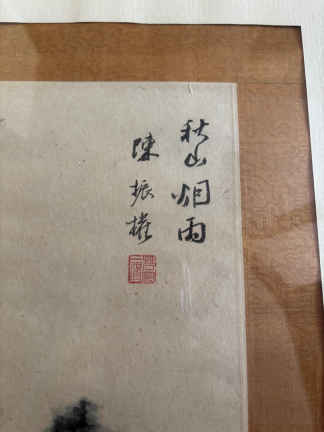 秋山烟雨
陳振